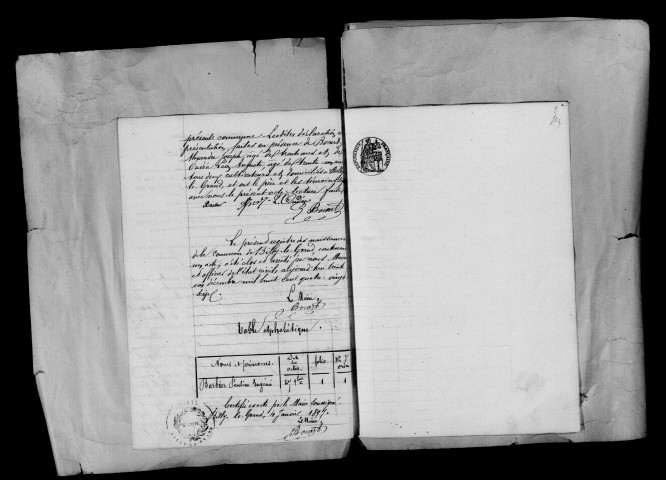 présente commune. Lesdites déclaration et
présentation faites en présence de Bocart
Alexandre Joseph, âgé de trente ans et de
âgé de trente un ans
tous deux cultivateurs et domiciliés à Billy
le Grand, et ont le père et les témoins signé
avec nous le présent acte lecture faite
Bocart
Le présent registre des naissances
de la commune de Billy-le-Grand, contenant
un acte, a été clos et arrêté par nous Maire
et officier de l'état civil aujourd'hui trente
un décembre mil huit cent quatre-vingt
Le Maire,
Bocart
Table alphabétique.
Noms et prénoms. Date des actes folio N° d'ordre
Barbier Pauline Eugénie 1 1
Certifié exacte par le Maire soussigné
Billy-le-Grand, 4 Janvier 1897
Le Maire,
Bocart